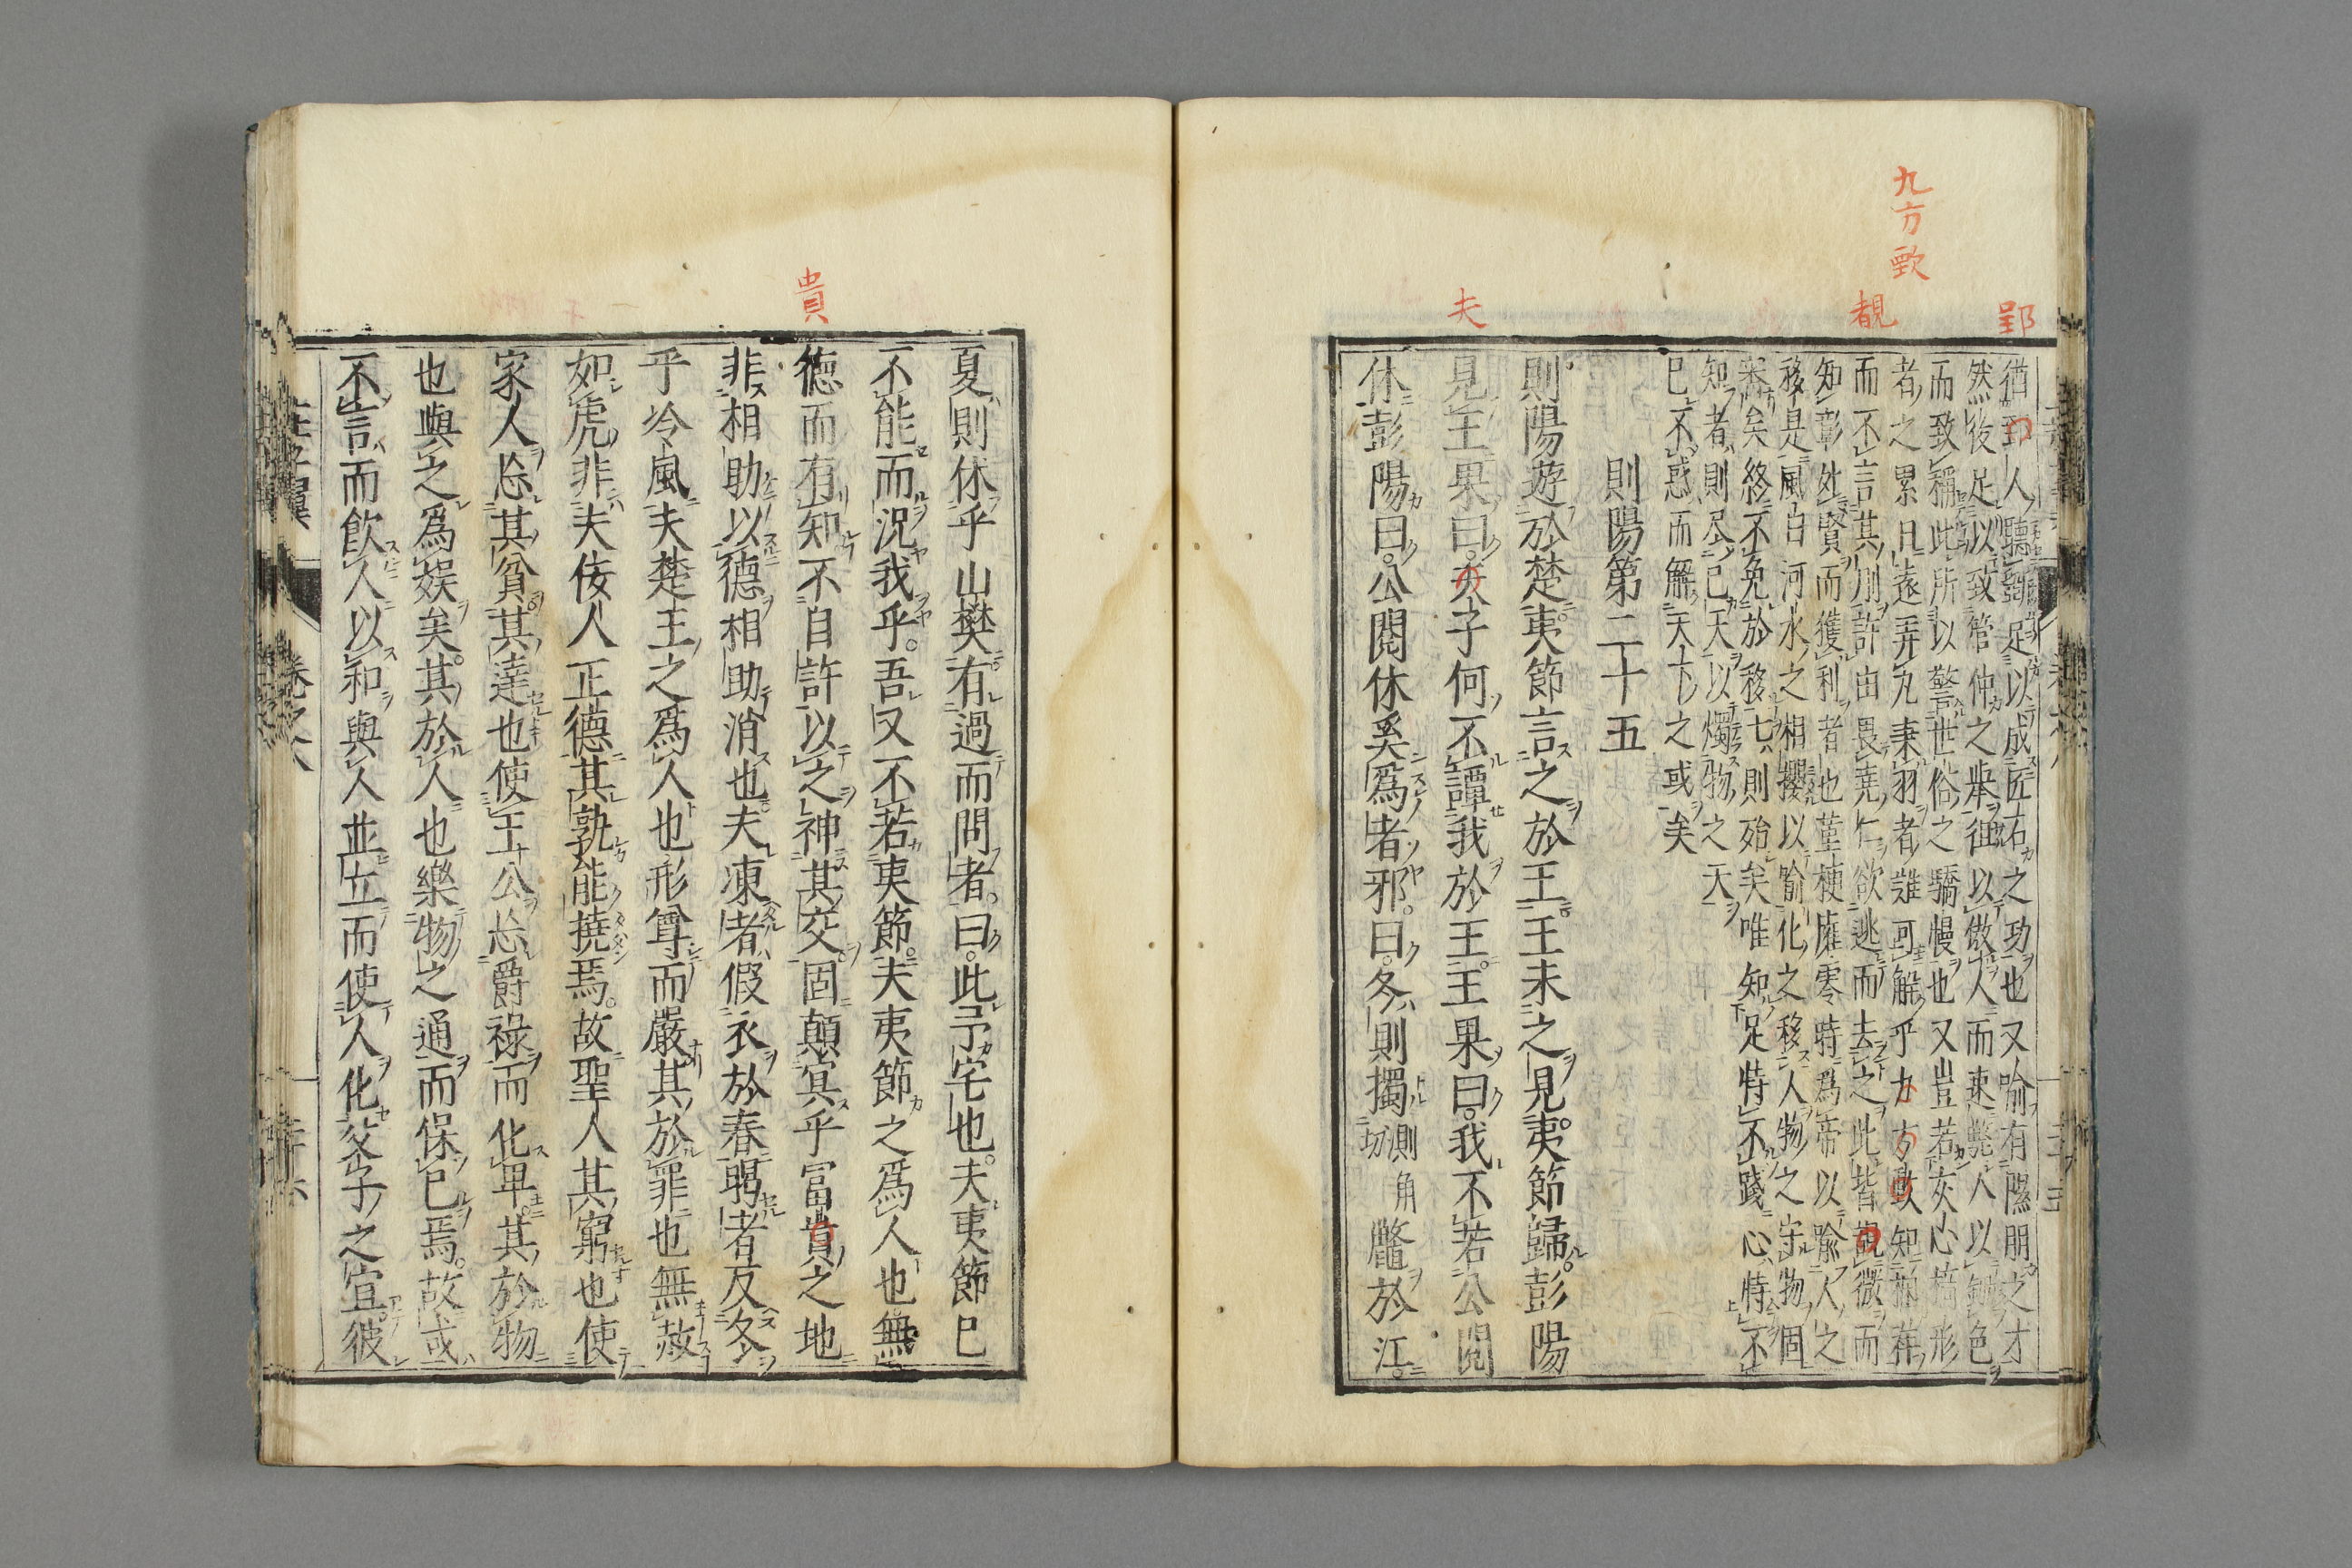 九方歅
郢
覩
夫
猶郢人聽斲足以成匠石之功也又喻有隰朋之才
然後足以致管仲之擧狙以傲人而速斃人以鋤色
而致稱此所以警世俗之驕慢也又豈若灰心槁形
者之累且遠弃九秉羽者難可解乎九方歅知相祥
而不言其刖許由畏堯仁欲逃而去之此皆覩微而
知彰外賢而獲利者也菫梗廱零時爲帝以喻人之
移是風日河水之相攖以喻化之移人物之守物固
審矣終不免於移七則殆矣唯知足恃不踐心恃不
知者則尽已天以燭物之天
已不惑而解天下之或矣
則陽第二十五
則陽遊於楚夷節言之於王王未之見夷節歸彭陽
見王果曰夫子何不譚我於王王果曰我不若公閱
休彭陽曰公閱休奚爲者邪曰冬則擉則角切鼈於江
貴
夏則休乎山樊有過而問者曰此予宅也夫夷節已
不能而況我乎吾又不若夷節夫夷節之爲人也無
德而有知不自許以之神其交固顛冥乎冨貴之地
非相助以德相助消也夫凍者假衣於春暍者反冬
乎冷風夫楚王之爲人也形尊而嚴其於罪也無赦
如虎非夫佞人正德其孰能撓焉故聖人其窮也使
家人忘其貧其達也使王公忘爵祿而化卑其於物
也與之爲娛矣其於人也樂物之通而保已焉故或
不言而飮人以和與人並立而使人化父子之宜彼
卷之八